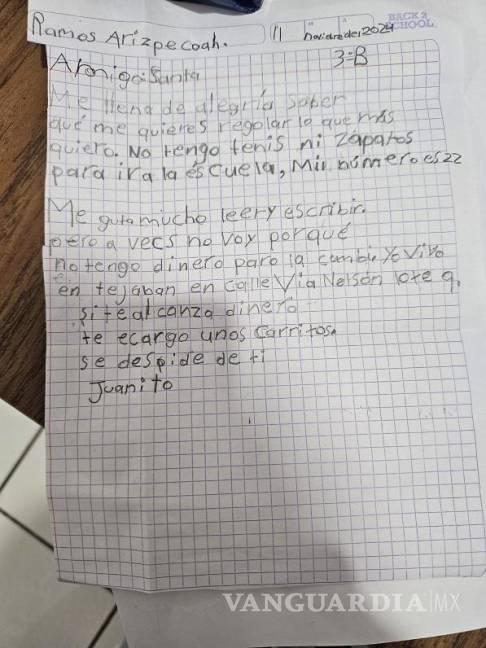 Ramos Arizpe coah.
11 noviaredei 2024
BACK 2 SCHOOL
3=B
Amigo: Santa
Me llena de alegría saber
qué me quieres regolar lo que más
quiero. No tengo tenis ni zapatos
para ir a la éscuela, Mir número es 22
Me guta mucho leer y escribir.
pero a vecs no voy porqué
no tengo dinero para la combi. Yo Vivo
en tejaban en calle Via Nelson lote 9.
si te alcanza dinero
te ecargo unos Carritos.
se despide de ti
Juanito
VANGUARDIA|MX